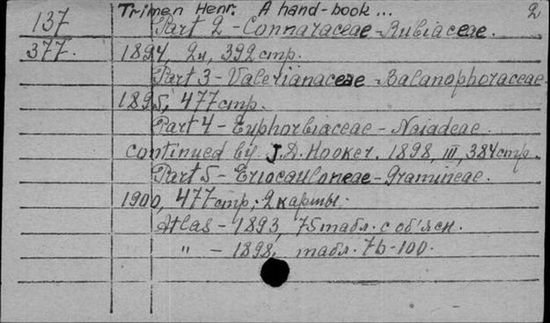 Trimen Henr. A hand-book... 2
137 Part 2 - Connaraceae - Rubiaceae.
377. 1894, 2н, 392 стр.
Part 3 - Valerianaceae - Balanophoraceae
1895, 477 стр.
Part 4 - Euphorbiaceae - Najadeae.
continued by J.D. Hooker. 1898, III, 384 стр.
Part 5 - Eriocauloneae - Gramineae.
1900, 477 стр; 2 карты.
Atlas - 1893, 75 табл. с об'ясн.
" - 1898, табл. 76-100.